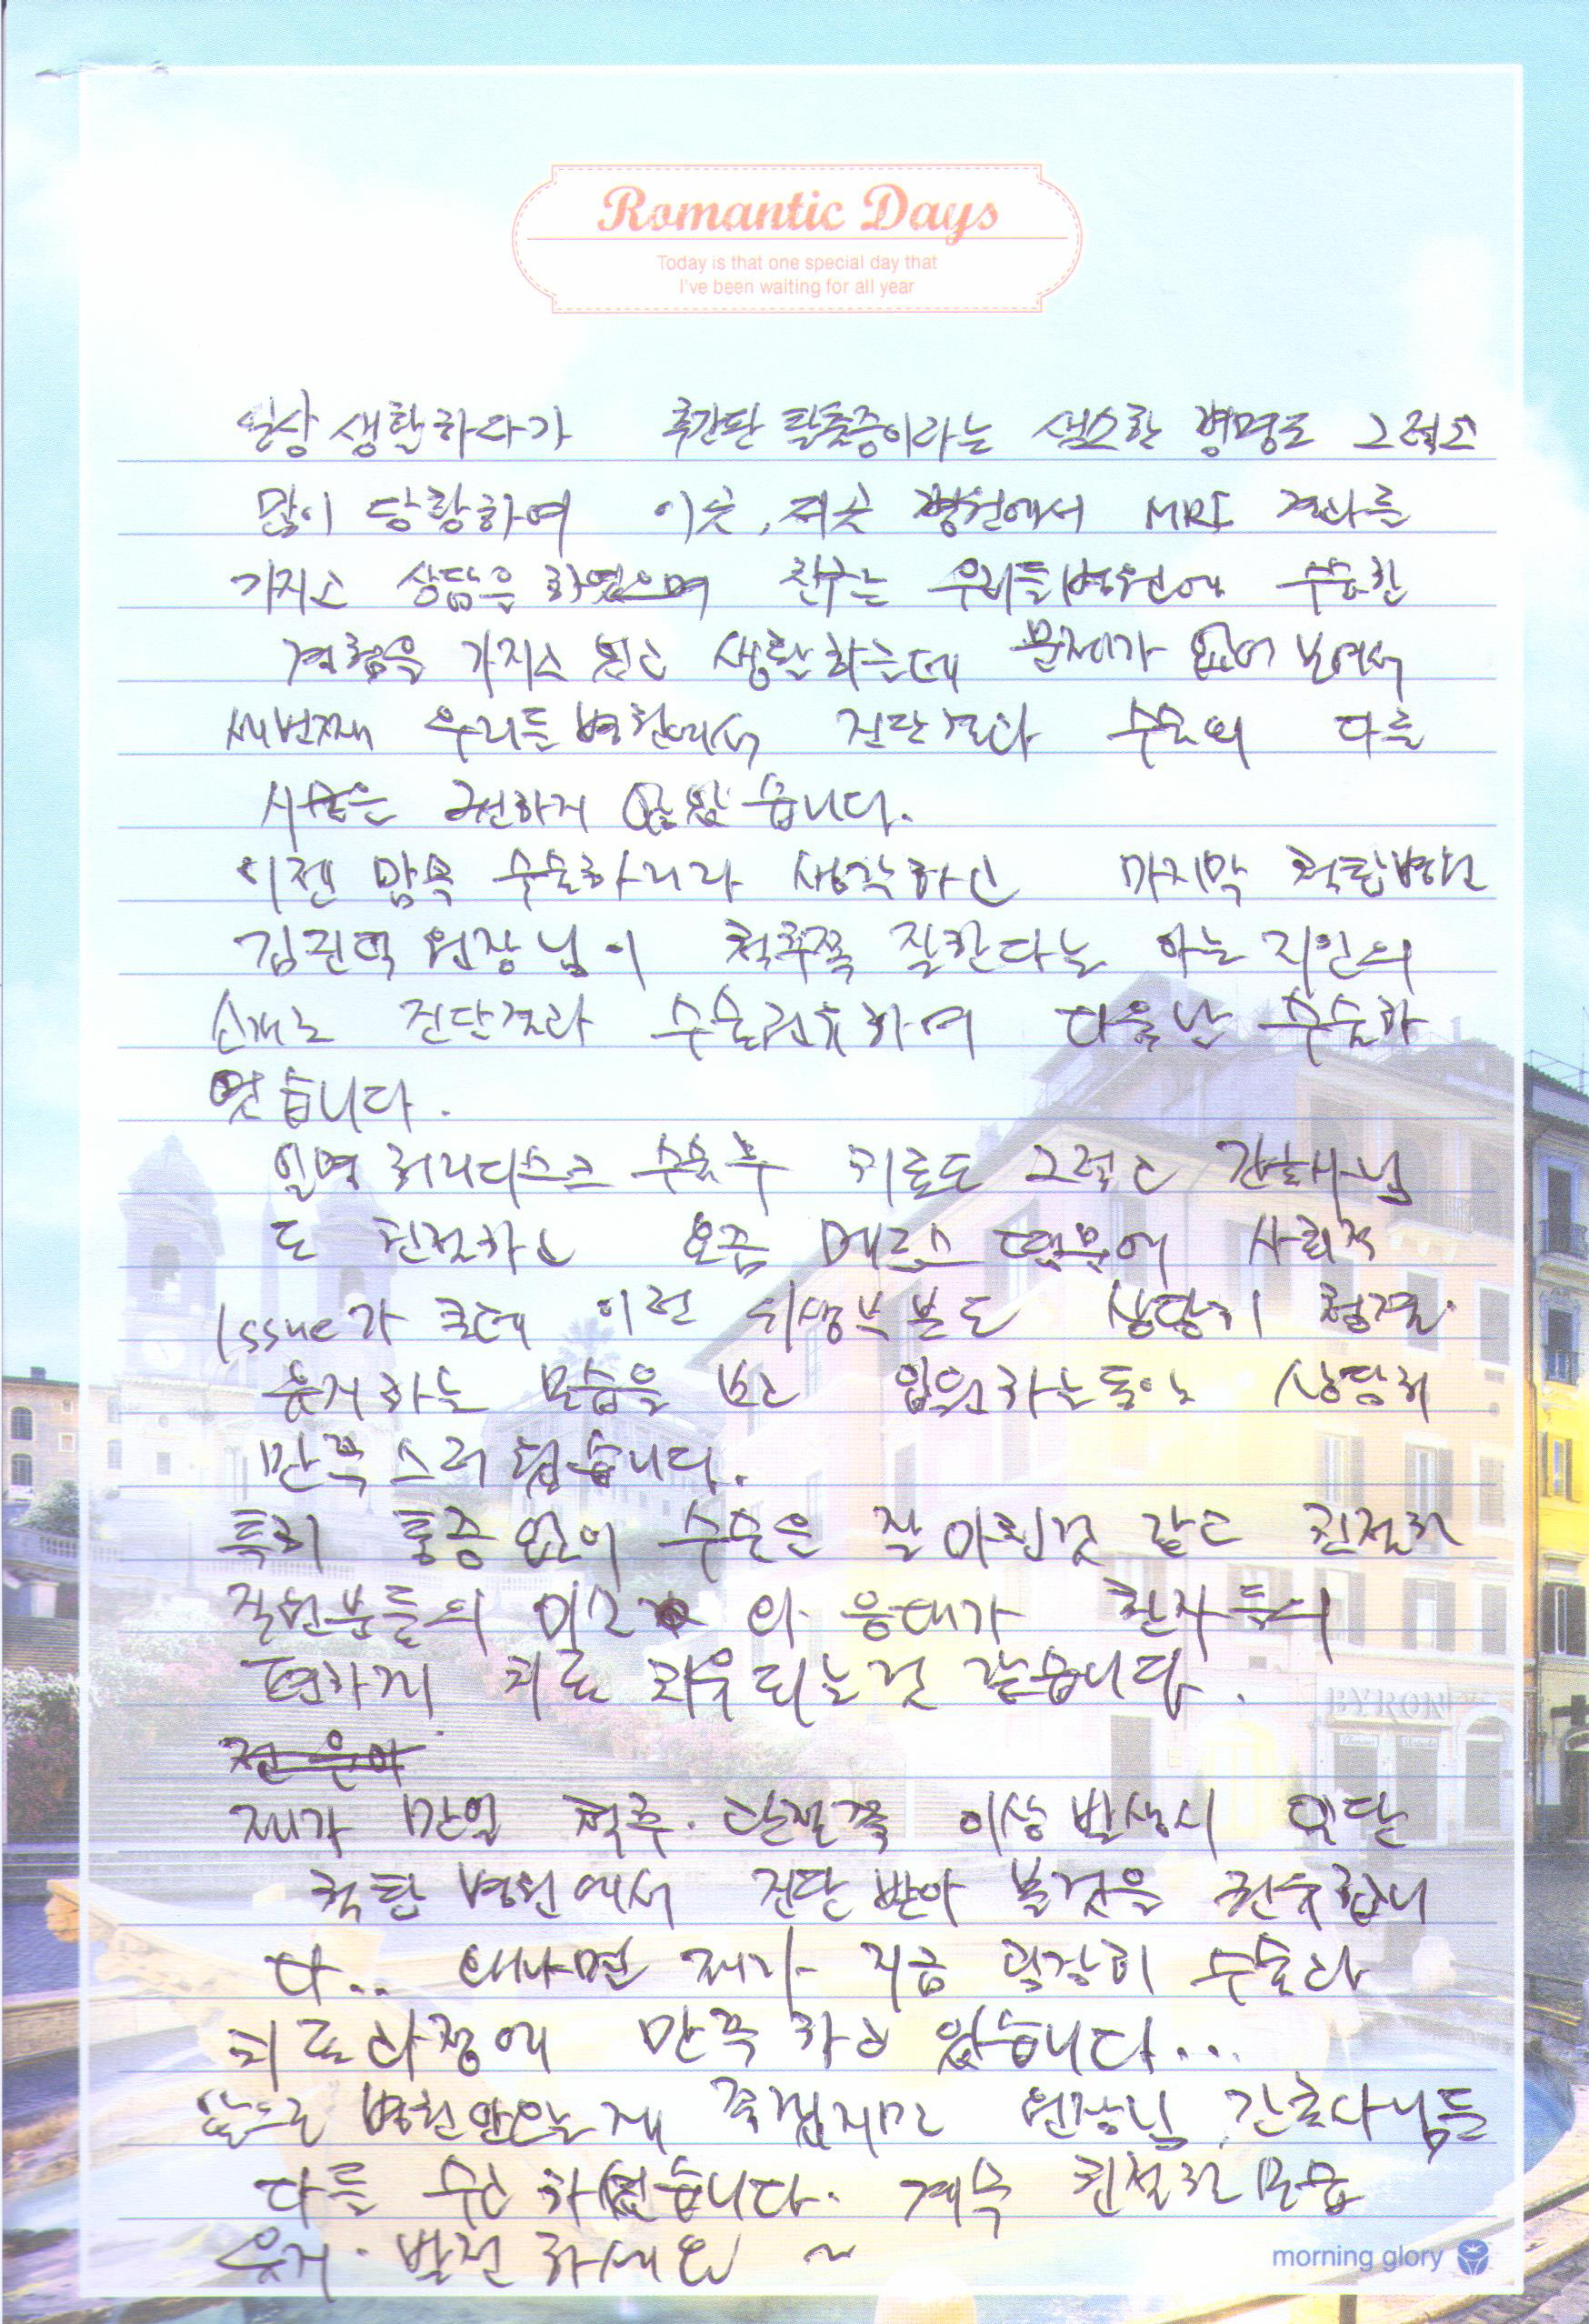 Romantic Days
Today is that one special day that
I've been waiting for all year
일상 생활하다가 추간판 탈출증이라는 생소한 병명도 그렇고
많이 당황하여 이곳, 저곳 병원에서 MRI 결과를
가지고 상담을 하였으며 친구는 우리들병원에 수술한
경험을 가지고 있고 생활하는데 문제가 없어 보여서
세번째 우리들 병원에서 진단결과 수술외 다른
시술은 권하지 않았습니다.
이젠 맘먹 수술하리라 생각하고 마지막 척탑병원
원장님이 척추쪽 잘한다는 아는 지인의
소개로 진단결과 수술권유하며 다음날 수술하
였습니다.
일명 허리디스크 수술후 치료도 그렇고 간호사님
도 친절하고 요즘 메르스 때문에 사회적
Issue가 큰데 이런 위생부분도 상당히 청결·
유지하는 모습을 보고 입원하는동안 상당히
만족스러웠습니다.
특히 통증없이 수술은 잘 마친것 같고 친절한
직원분들의 미소와 응대가 환자들의
편하게 치료 치유되는것 같습니다.
제가 만일 척추·관절쪽 이상 발생시 일단
척탑 병원에서 진단 받아 볼것을 권유합니
다.. 왜냐면 제가 지금 굉장히 수술과
치료과정에 만족하고 있습니다...
앞으로 병원안올게 즉겁지만 원장님, 간호사님들
다들 수고하셨습니다. 계속 친절한 모습
유지·발전하세요 ~
morning glory